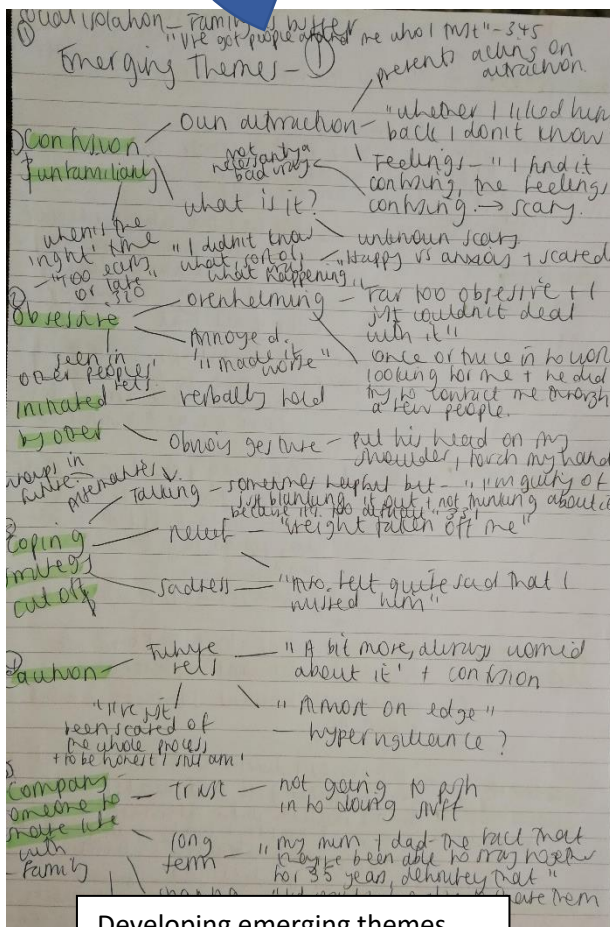 Social isolation - Family is buffer
① "I've got people around me who I trust" - 345
Emerging Themes - ①
prevents acting on attraction.
① Confusion & unfamiliarity
own attraction - "whether I liked him back I don't know
Feelings - "I find it confusing, the feelings confusing. → scary.
not necessarily a bad way
what is it?
unknown scary
"I didn't know what sort of, what happening"
"Happy vs anxious + scared
when's the 'right' time - "too early or late" 320
Obsessive
overwhelming - "Far too obsessive + I just couldn't deal with it"
Annoyed. "made it worse"
once or twice in
looking for me + he did try to contact me through a few people.
seen in other peoples' rels
initiated by other
verbally told
Obvious gesture - put his head on my shoulder, touch my hand
in future
alternatives
Coping strategy cut off
Talking - sometimes helpful but - "I'm guilty of just blanking it out, not thinking about it because it's too difficult"
relief - "weight taken off me"
sadness - "Also, felt quite sad that I missed him"
Caution
Future rels - "A bit more, always worried about it" + confusion
"Almost on edge" - hypervigilance?
"I've just been scared of the whole process + to be honest I still am"
Company someone to share life with
- Family
Trust - not going to push in to doing stuff
long term - "my mum + dad - the fact that maybe been able to stay together for 35 years, definitely that"
sharing
share them
Developing emerging themes